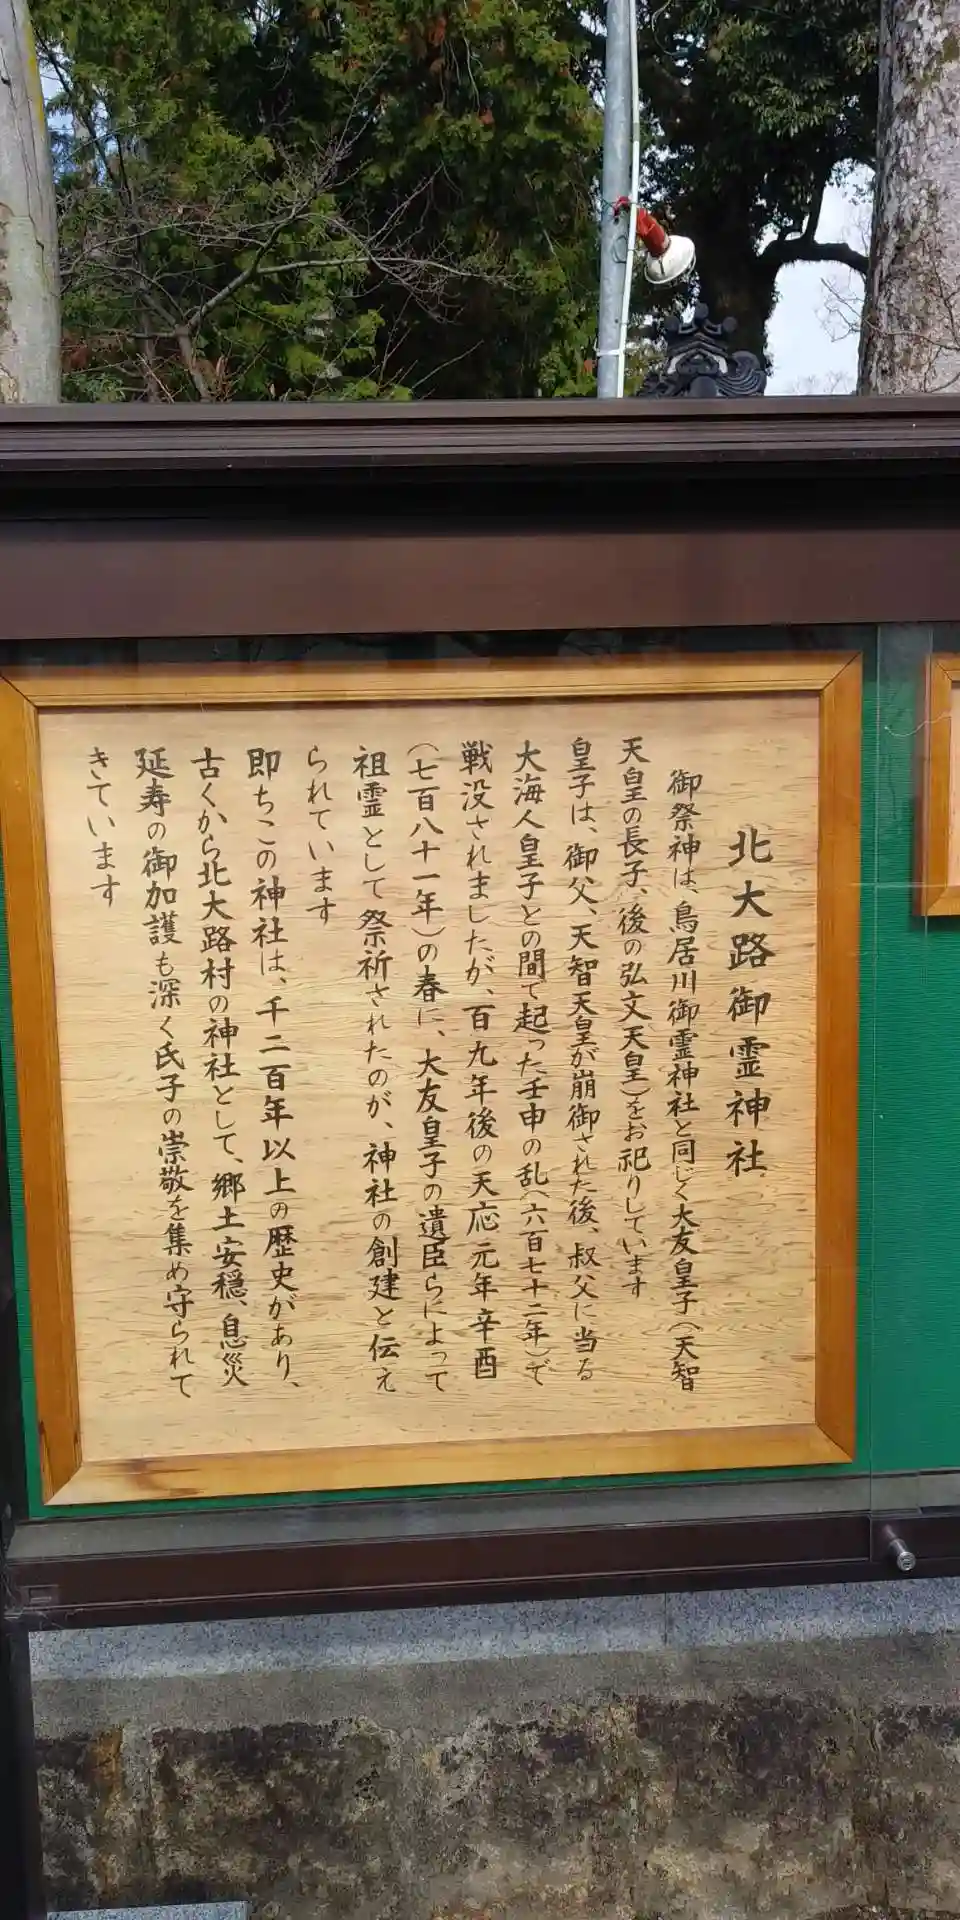 北大路御霊神社
御祭神は、鳥居川御霊神社と同じく大友皇子（天智
天皇の長子、後の弘文天皇）をお祀りしています
皇子は、御父、天智天皇が崩御された後、叔父に当る
大海人皇子との間で起った壬申の乱（六百七十二年）で
戦没されましたが、百九年後の天応元年辛酉
（七百八十一年）の春に、大友皇子の遺臣らによって
祖霊として祭祈されたのが、神社の創建と伝え
られています
即ちこの神社は、千二百年以上の歴史があり、
古くから北大路村の神社として、郷土安穏、息災
延寿の御加護も深く氏子の崇敬を集め守られて
きています